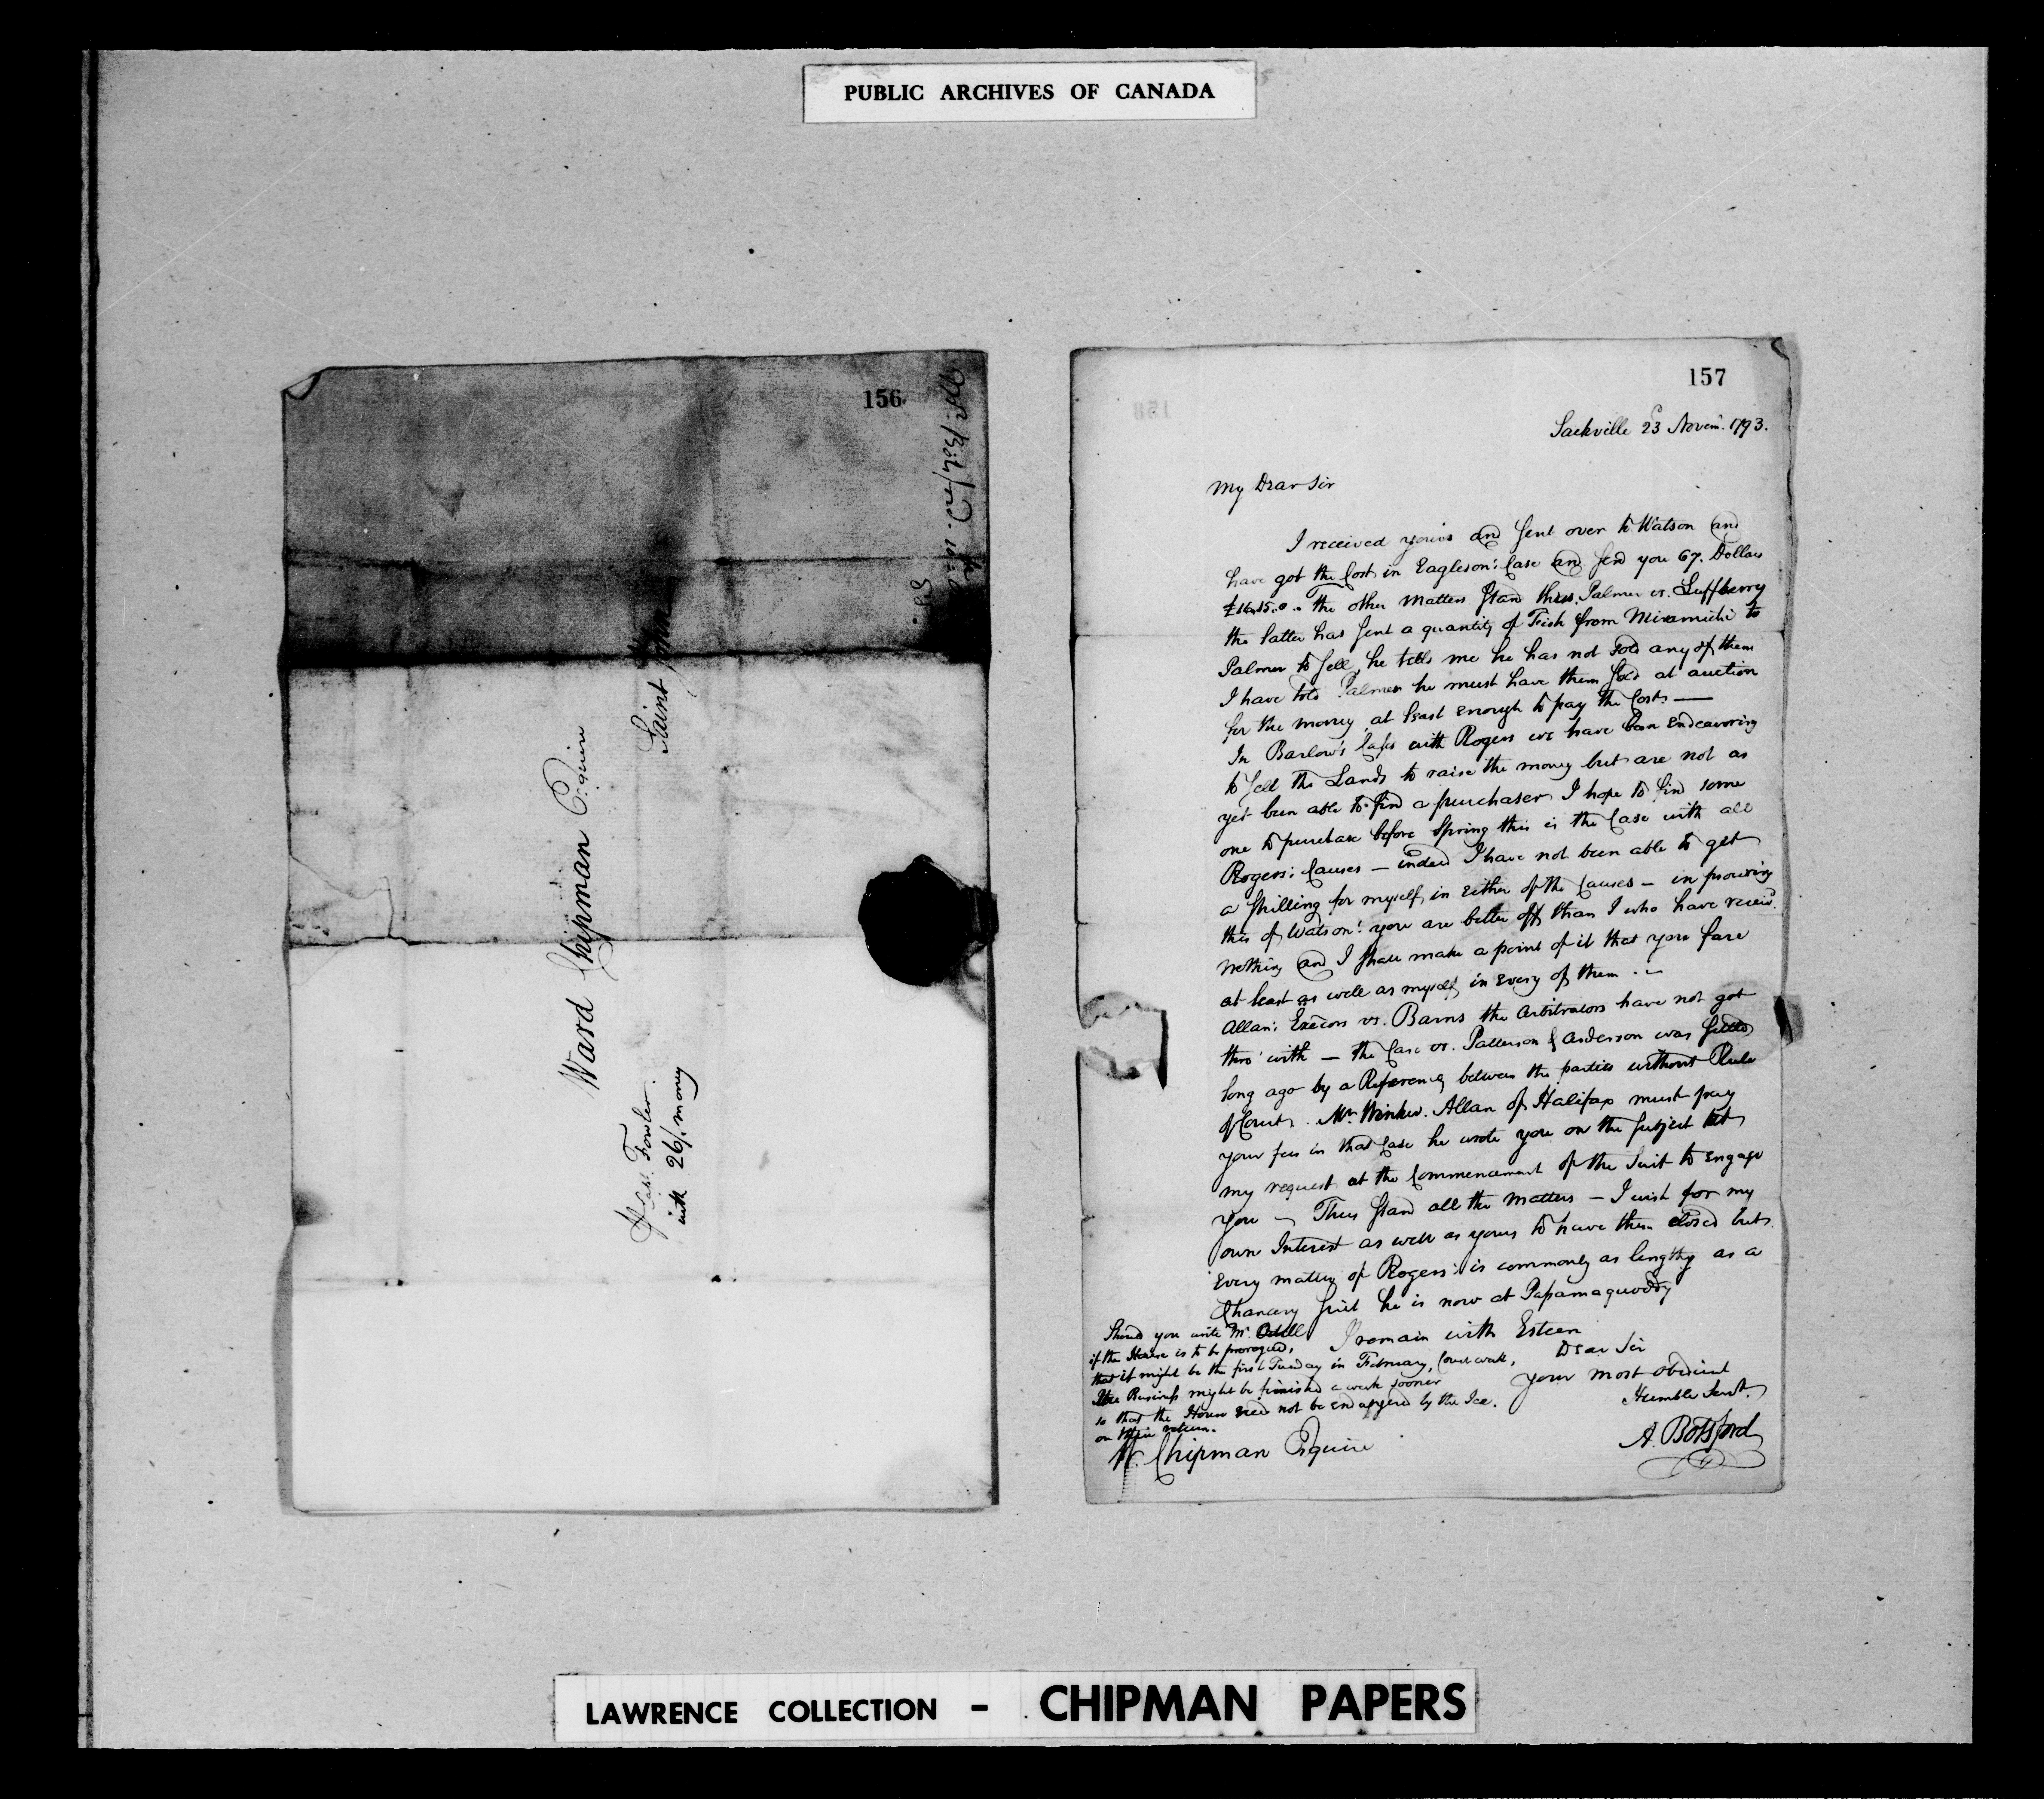 PUBLIC ARCHIVES OF CANADA
156
Ward Chipman Esquire
Saint John
Capt. Fowler.
with 26/. mony
157
Sackville 23 Novem. 1793.
My Dear Sir
I received yours and Sent over to Watson and
have got the Cost in Eagleson's Case and Send you 67. Dollars
£16.15.0 .. The other Matters Stand thus. Palmer vs. Luffberry
the latter has Sent a quantity of Fish from Miramichi to
Palmer to Sell, he tells me he has not sold any of them
I have told Palmer he must have them sold at auction
for the money at least Enough to pay the Cost. —
In Barlow's Case with Rogers we have been Endeavoring
to Sell the Lands to raise the money but are not as
yet been able to find a purchaser I hope to find some
one to purchase before Spring this is the Case with all
Rogers's Causes — indeed I have not been able to get
a Shilling for myself in Either of the Causes — in procuring
this of Watson's you are better off than I who have receiv'd
nothing and I Shall make a point of it that you fare
at least as well as myself in Every of them . —
Allan's Execors vs. Barns the Arbitrators have not got
thro' with — the Case vs. Patterson & Anderson was Settled
long ago by a Reference between the parties without Rule
of Court. Mr. Winkw. Allan of Halifax must pay
your fees in that Case he wrote you on the Subject at
my request at the Commencement of the Suit to Engage
you — Thus Stand all the Matters — I wish for my
own Interest as well as yours to have them closed but
Every matter of Rogers's is commonly as lengthy as a
Chancery Suit he is now at Passamaquoddy
I remain with Esteem
Dear Sir
Your most obedient
Humble Servt.
A. Botsford
Should you write Mr. Odell
if the House is to be prorogued,
that it might be the first Tuesday in February, Court week,
the Business might be finished a week sooner
so that the House need not be endangered by the Ice.
on their return.
W. Chipman Esquire
LAWRENCE COLLECTION - CHIPMAN PAPERS